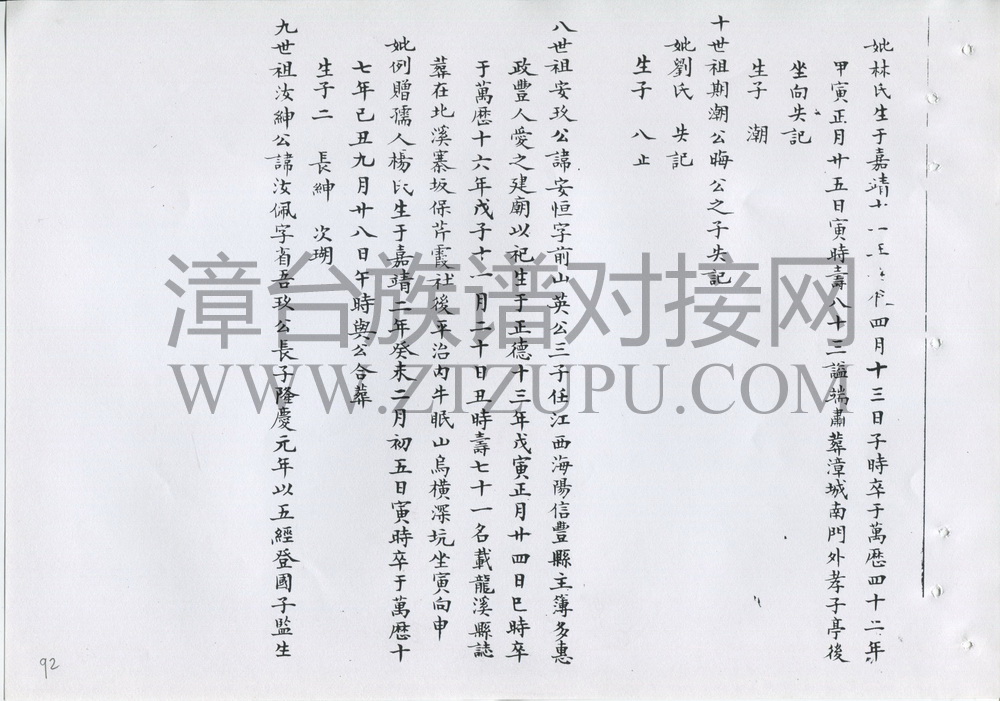 妣林氏生于嘉靖十一 四月十三日子時卒于萬歷四十二年
甲寅正月廿五日寅時壽八十三謚端肅葬漳城南門外孝子亭後
坐向失記
生子 潮
十世祖期潮公晦公之子失記
妣劉氏 失記
生子 八止
八世祖安玖公諱安恒字前山英公三子任江西海陽信豐縣主簿多惠
政豐人愛之建廟以祀生于正德十三年戊寅正月廿四日巳時卒
于萬歷十六年戊子十一月二十日丑時壽七十一名載龍溪縣誌
葬在北溪寨坂保芹霞社後平治內牛眠山烏橫深坑坐寅向申
妣例贈孺人楊氏生于嘉靖二年癸未二月初五日寅時卒于萬歷十
七年己丑九月廿八日午時與公合葬
生子二 長紳 次瑚
九世祖汝紳公諱汝佩字省吾玖公長子隆慶元年以五經登國子監生
漳台族谱对接网
WWW.ZTZUPU.COM
92